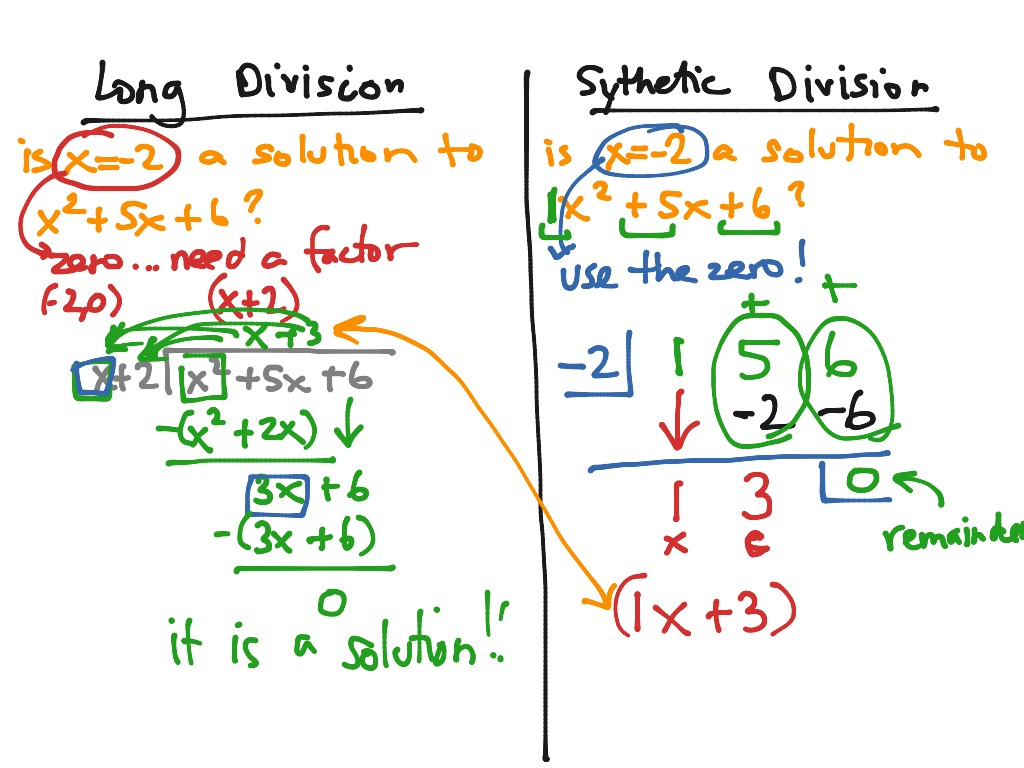 Long Division
is x=-2 a solution to
x² + 5x + 6 ?
zero... need a factor
(-2,0) (x+2)
x + 3
x+2 x² + 5x + 6
-(x² + 2x)
3x + 6
-(3x + 6)
0
it is a solution!!
Sythetic Division
is x=-2 a solution to
1x² + 5x + 6 ?
use the zero!
+ +
-2 1 5 6
-2 -6
1 3 0
remainder
x c
(1x + 3)